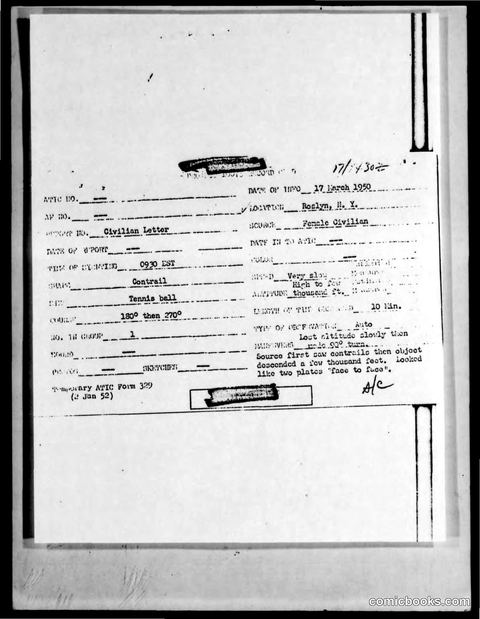 17/1430Z
DATE OF INFO 17 March 1950
ATIC NO. --
LOCATION Roslyn, N. Y.
AF NO. --
SOURCE Female Civilian
REPORT NO. Civilian Letter
DATE IN TO ATIC --
DATE OF REPORT --
COLOR --
TIME OF SIGHTING 0930 EST
SPEED Very slow
SHAPE Contrail
High to few
ALTITUDE thousand ft.
SIZE Tennis ball
LENGTH OF TIME OBSERVED 10 Min.
COURSE 180° then 270°
TYPE OF OBSERVATION Auto
NO. IN GROUP 1
Lost altitude slowly then
MANEUVERS made 90° turn.
SOUND --
Source first saw contrails then object
descended a few thousand feet. Looked
like two plates "face to face".
PHOTOS -- SKETCHES --
Temporary ATIC Form 329
(2 Jan 52)
A/C
comicbooks.com